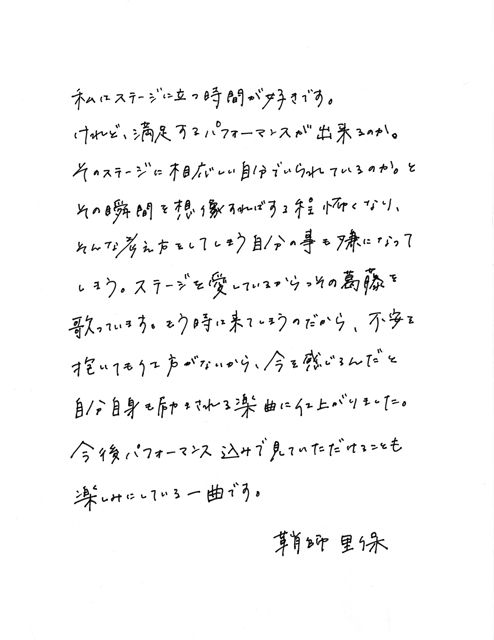 私はステージに立つ時間が好きです。
けれど、満足するパフォーマンスが出来るのか。
そのステージに相応しい自分でいられているのか。と
その瞬間を想像すればする程怖くなり、
そんな考え方をしてしまう自分の事も嫌になって
しまう。ステージを愛しているからこその葛藤を
歌っています。もう時は来てしまうのだから、不安を
抱いても仕方がないから、今を感じるんだと
自分自身も励まされる楽曲に仕上がりました。
今後パフォーマンス込みで見ていただけることも
楽しみにしている一曲です。
鞘師 里保